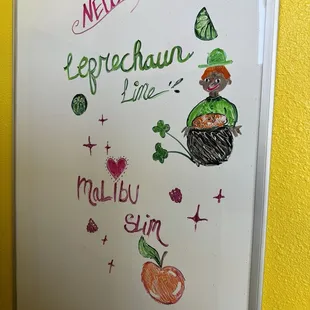 Leprechaun
Lime
MaLIBU
SLIM